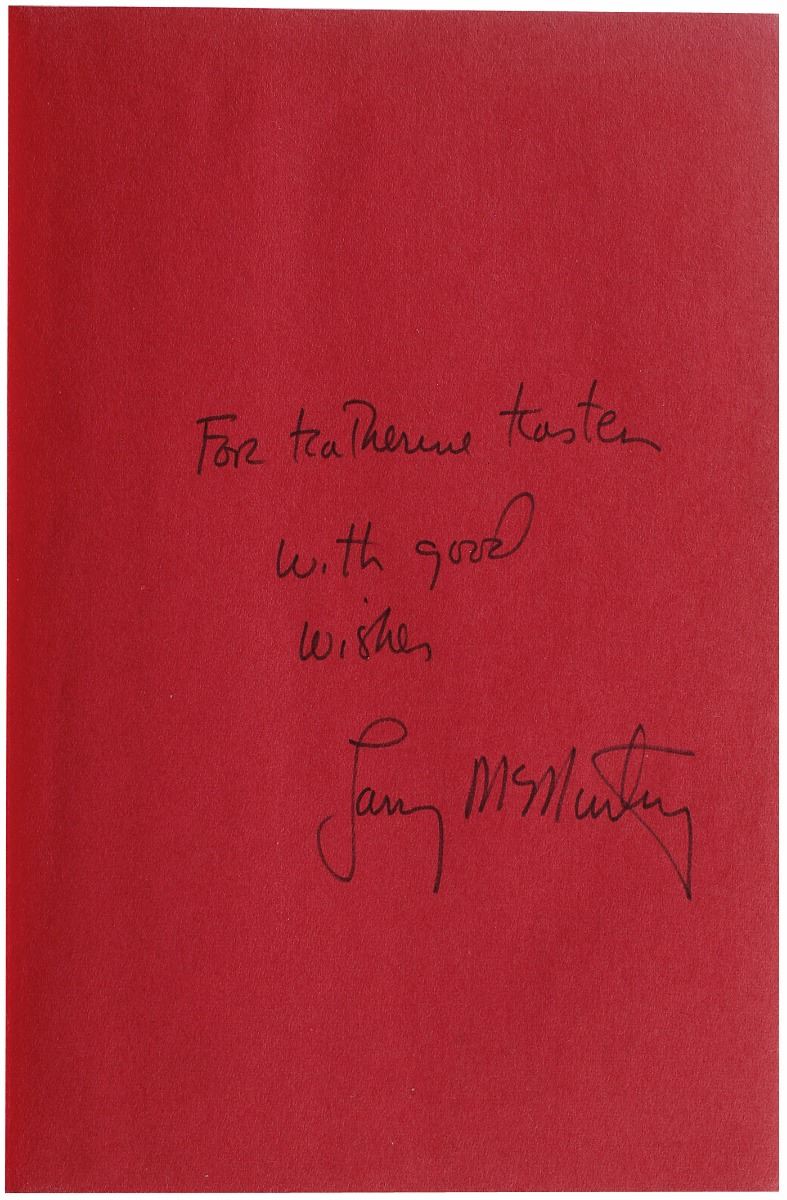 For Katherine Kasten
with good
wishes
Larry McMurtry